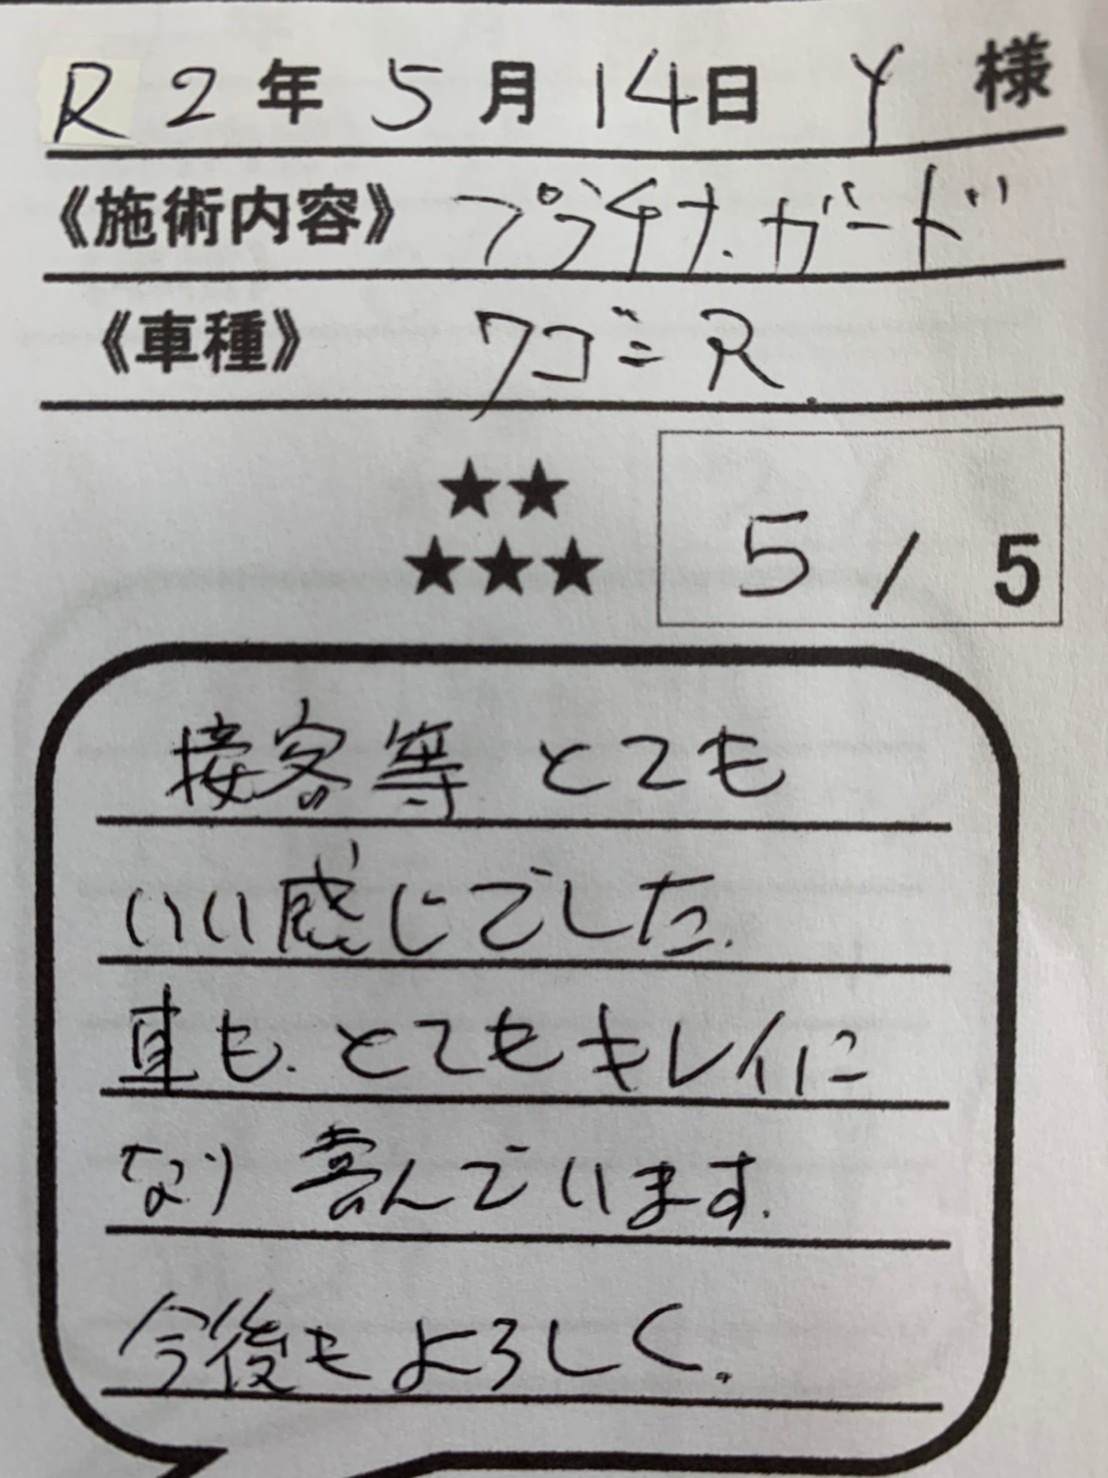 R2年5月14日 Y 様
《施術内容》 プラチナ.ガード
《車種》 ワゴニR.
★★
★★★ 5/5
接客等とても
いい感じでした.
車も.とてもキレイに
なり喜んでいます.
今後もよろしく.